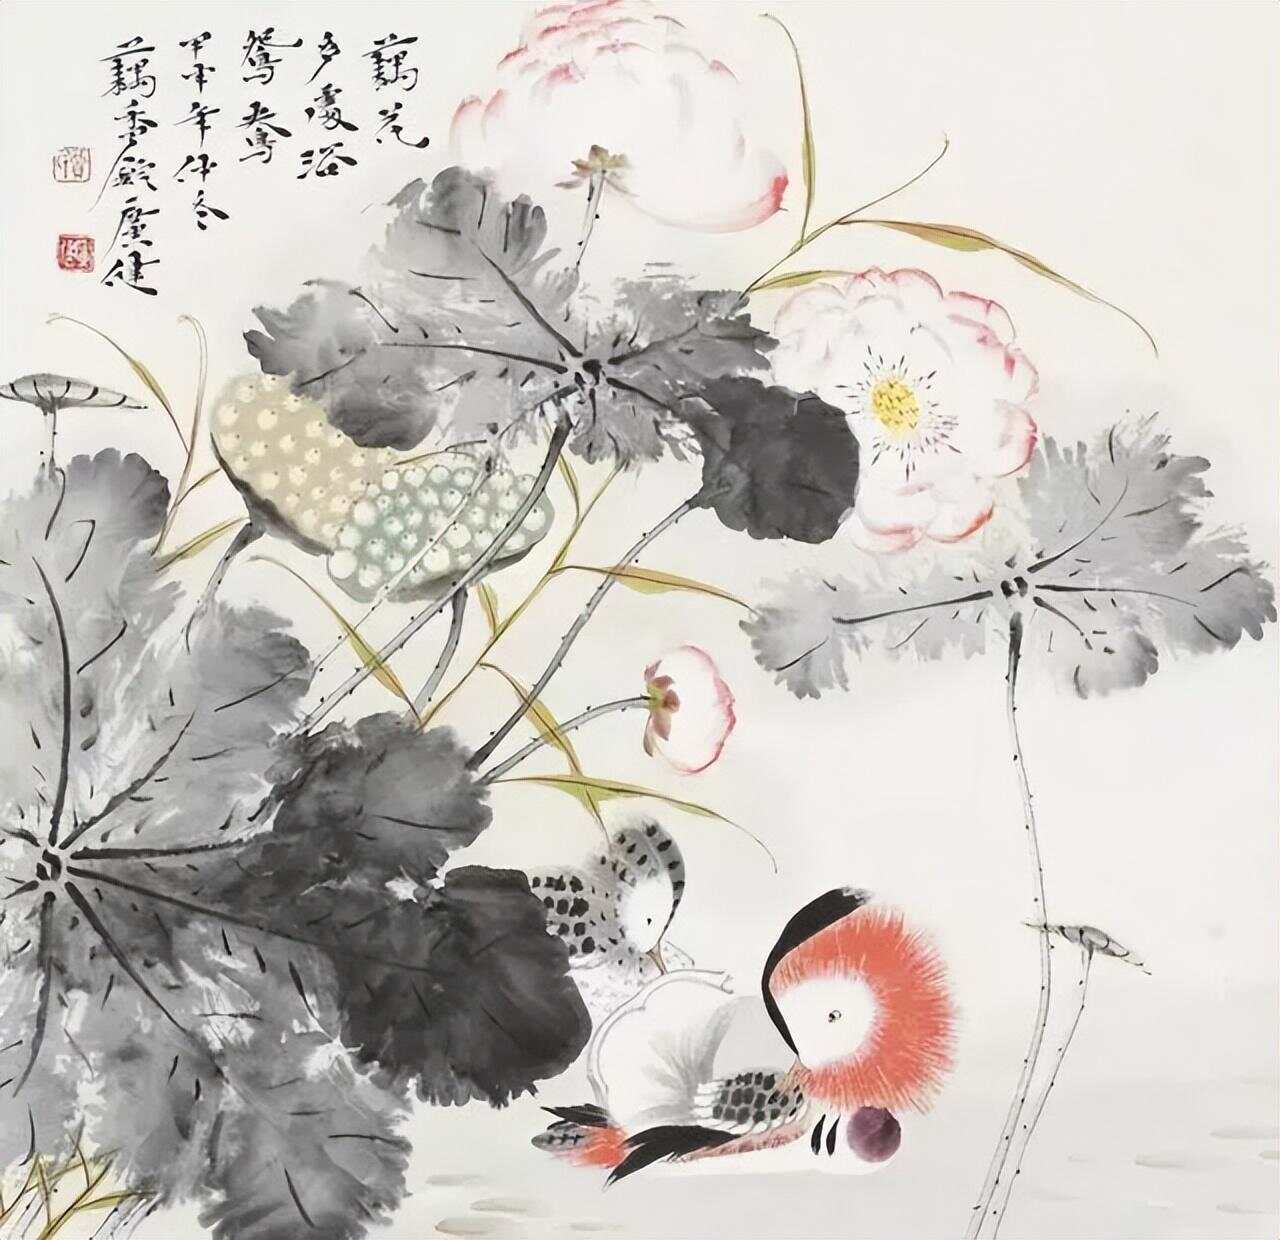 藕花
多處浴
鴛鴦
甲申年仲冬
藕香館廣健